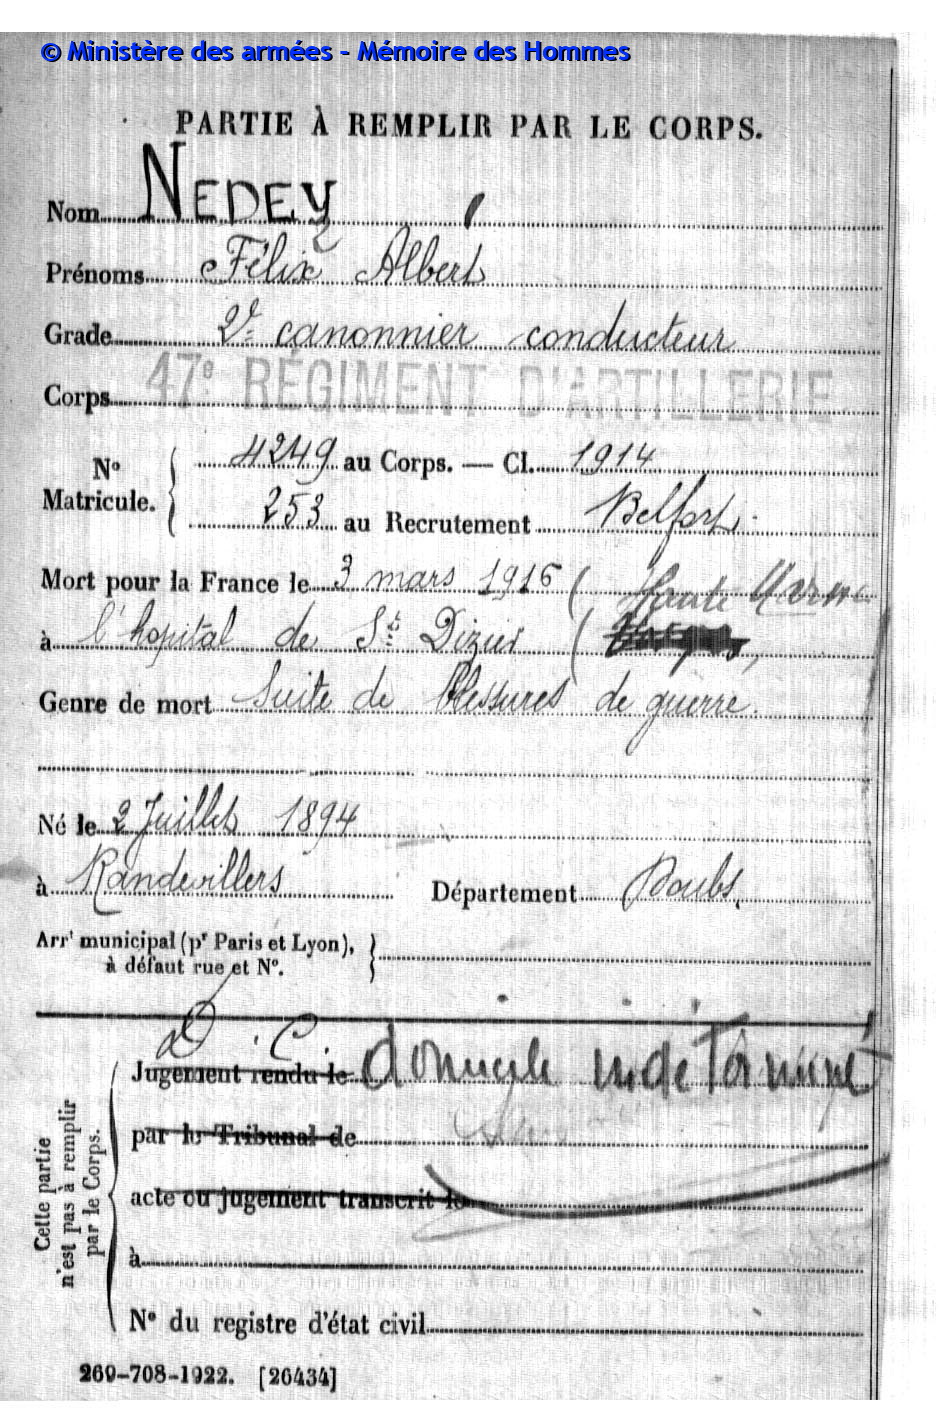 © Ministère des armées - Mémoire des Hommes
PARTIE À REMPLIR PAR LE CORPS.
Nom NEDEY
Prénoms Félix Albert
Grade 2e canonnier conducteur
Corps 47e RÉGIMENT D'ARTILLERIE
No Matricule. 4249 au Corps. — Cl. 1914
253 au Recrutement Belfort
Mort pour la France le 3 mars 1916 (Haute Marne
à l'hopital de St Dizier (
Genre de mort Suite de blessures de guerre.
Né le 2 Juillet 1894
à Randevillers Département Doubs
Arrt municipal (pr Paris et Lyon),
à défaut rue et No.
D. C. domicile indéterminé
Jugement rendu le
par le Tribunal de
acte ou jugement transcrit le
à
No du registre d'état civil
Cette partie
n'est pas à remplir
par le Corps.
269-708-1922. [26434]